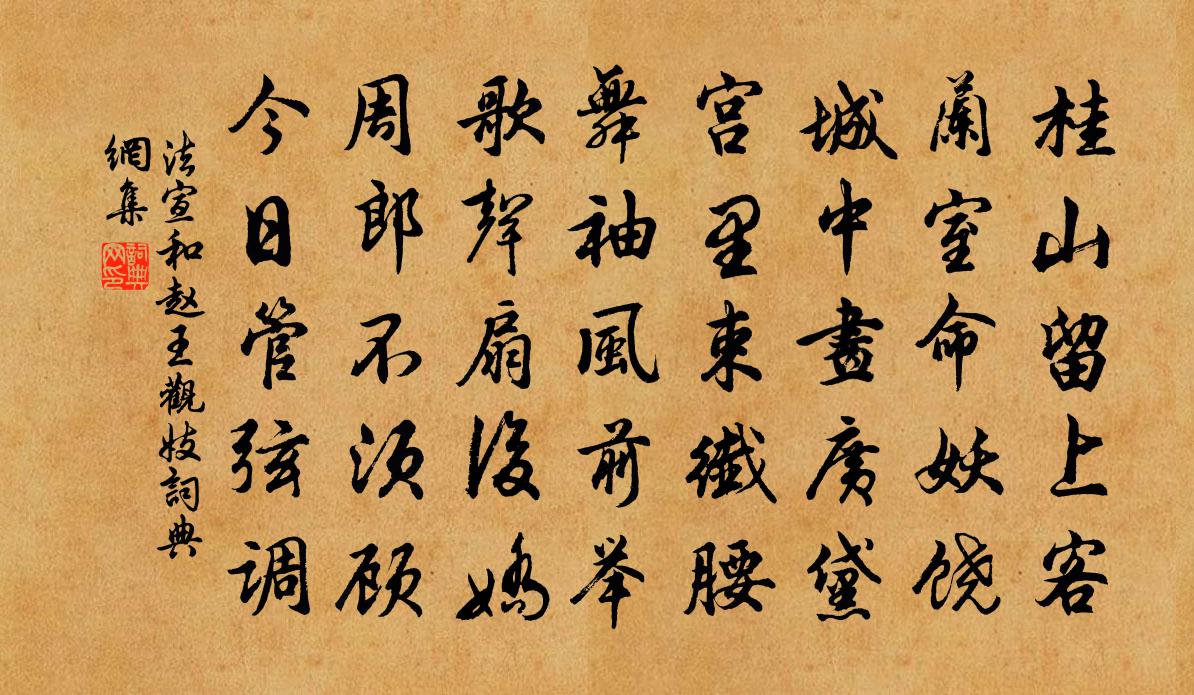 桂山留上客
蘭室命妖饶
城中畫廣黛
宫里束纖腰
舞袖風前举
歌聲扇後嬌
周郎不须顾
今日管弦调
法宣和赵王觀妓詞典
網集
詞典网印